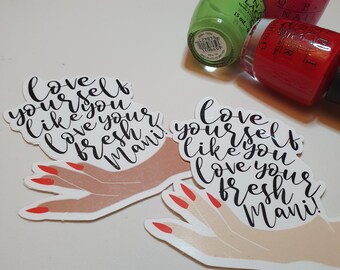 love
yourself
like you
love your
fresh
Mani!
love
yourself
like you
love your
fresh
Mani!